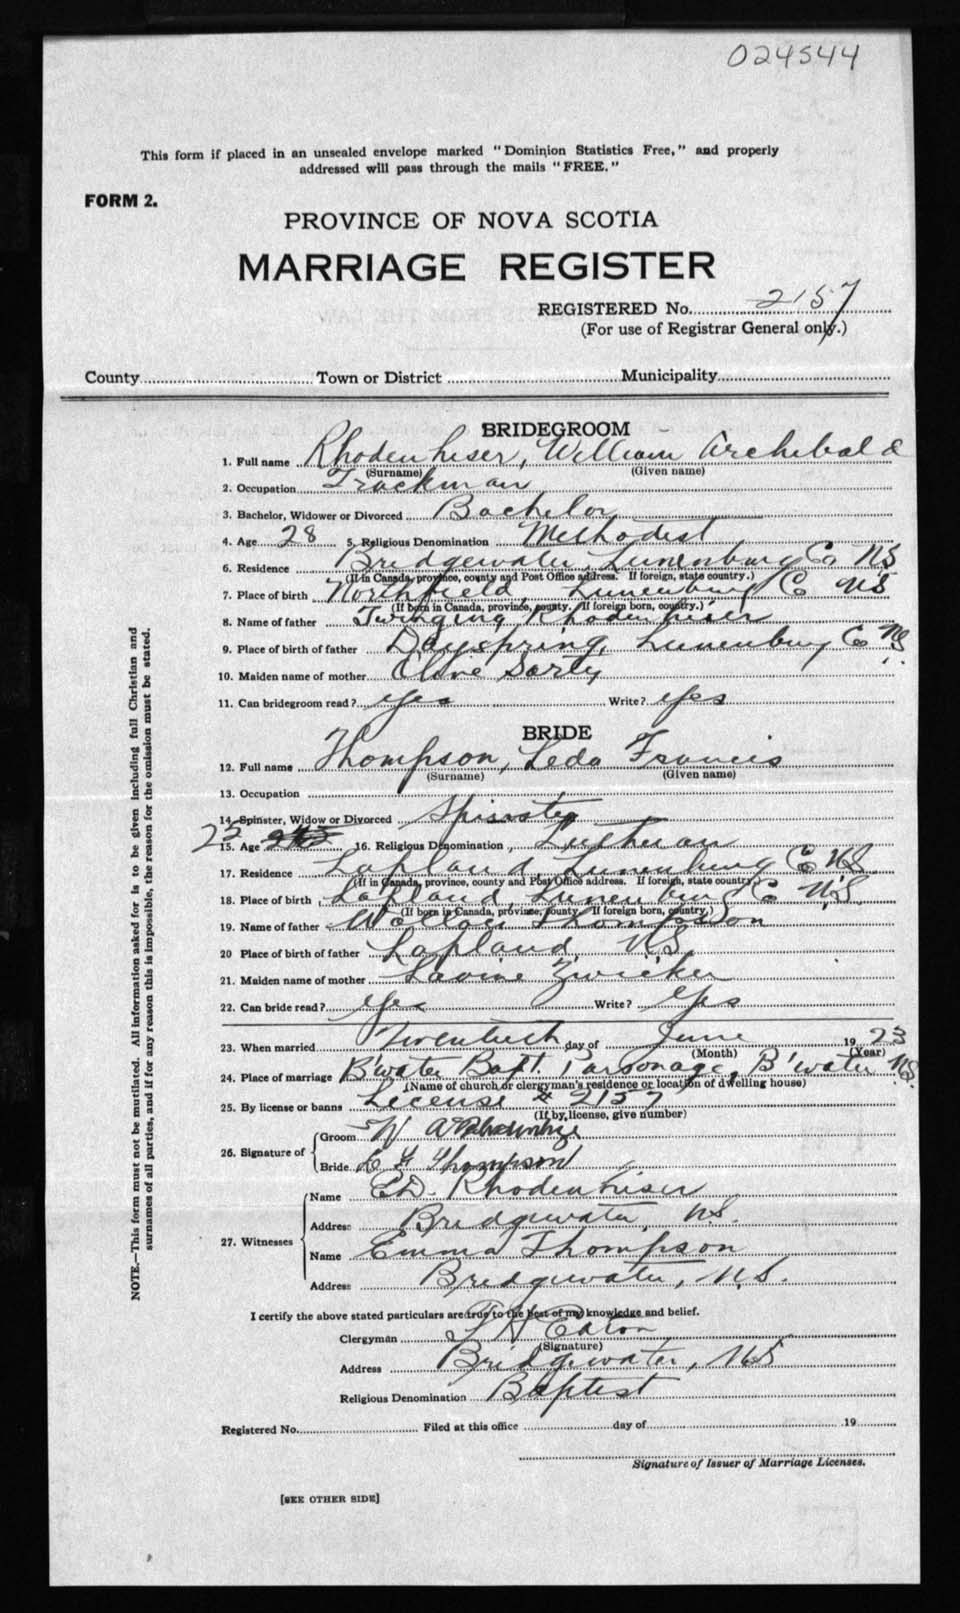 024544
This form if placed in an unsealed envelope marked "Dominion Statistics Free," and properly
addressed will pass through the mails "FREE."
FORM 2.
PROVINCE OF NOVA SCOTIA
MARRIAGE REGISTER
REGISTERED No. 2157
(For use of Registrar General only.)
County Town or District Municipality
BRIDEGROOM
1. Full name Rhodenhiser, William Archibald
(Surname) (Given name)
2. Occupation Trackman
3. Bachelor, Widower or Divorced Bachelor
4. Age 28 5. Religious Denomination Methodist
6. Residence Bridgewater, Lunenburg Co NS
(If in Canada, province, county and Post Office address. If foreign, state country.)
7. Place of birth Northfield, Lunenburg Co NS
(If born in Canada, province, county. If foreign born, country.)
8. Name of father Rhodenhiser
9. Place of birth of father Dayspring, Lunenburg Co NS
10. Maiden name of mother Olive
11. Can bridegroom read? yes Write? yes
BRIDE
12. Full name Thompson, Leda Francis
(Surname) (Given name)
13. Occupation
14. Spinster, Widow or Divorced Spinster
22 15. Age 16. Religious Denomination Lutheran
17. Residence Lapland, Lunenburg Co NS
(If in Canada, province, county and Post Office address. If foreign, state country.)
18. Place of birth Lapland, Lunenburg Co N.S.
(If born in Canada, province, county. If foreign born, country.)
19. Name of father Wallace Thompson
20 Place of birth of father Lapland, N.S.
21. Maiden name of mother Lavine Zwicker
22. Can bride read? Yes Write? Yes
23. When married Twentieth day of June 1923
(Month) (Year)
24. Place of marriage B'water Bapt. Parsonage, B'water N.S.
(Name of church or clergyman's residence or location of dwelling house)
25. By license or banns License # 2157
(If by license, give number)
26. Signature of Groom W A
Bride L F Thompson
27. Witnesses Name Ed. Rhodenhiser
Address Bridgewater, N.S.
Name Emma Thompson
Address Bridgewater, N.S.
I certify the above stated particulars are true to the best of my knowledge and belief.
Clergyman Eaton
(Signature)
Address Bridgewater, NS
Religious Denomination Baptist
Registered No. Filed at this office day of 19
Signature of Issuer of Marriage Licenses.
[SEE OTHER SIDE]
NOTE.—This form must not be mutilated. All information asked for is to be given including full Christian and
surnames of all parties, and if for any reason this is impossible, the reason for the omission must be stated.